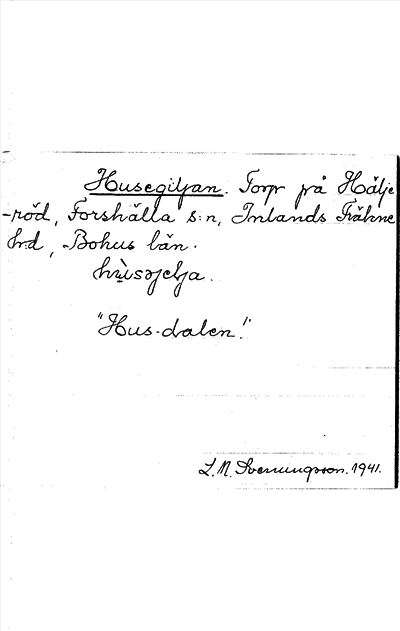 Husegiljan. Torp på Hälje
-röd, Forshälla s:n, Inlands Fräkne
h:d, Bohus län.
hùsəjelja.
"Hus-dalen!"
L. M. Svenungsson. 1941.